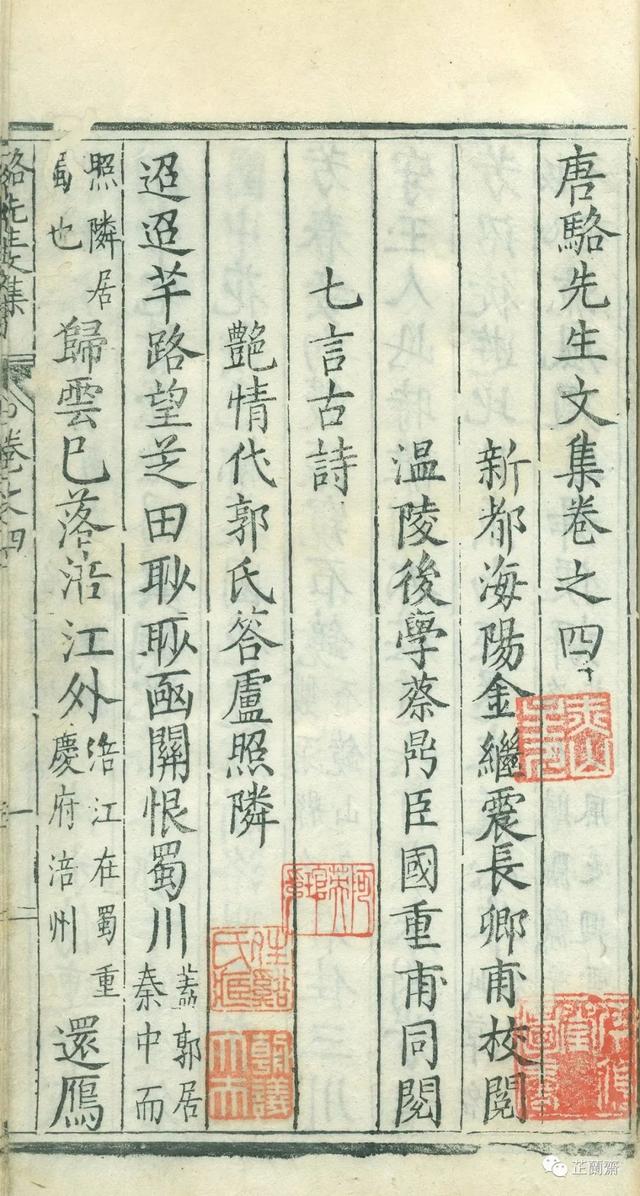 唐駱先生文集卷之四
新都海陽金繼震長卿甫校閱
温陵後學蔡鼎臣國重甫同閱
七言古詩
艷情代郭氏答盧照隣
迢迢芊路望芝田眇眇凾關恨蜀川
蓋郭居
秦中而
照隣居
蜀也
歸雲已落涪江外
涪江在蜀重
慶府涪州
還鴈
駱先生文集
卷之四
芷蘭齋